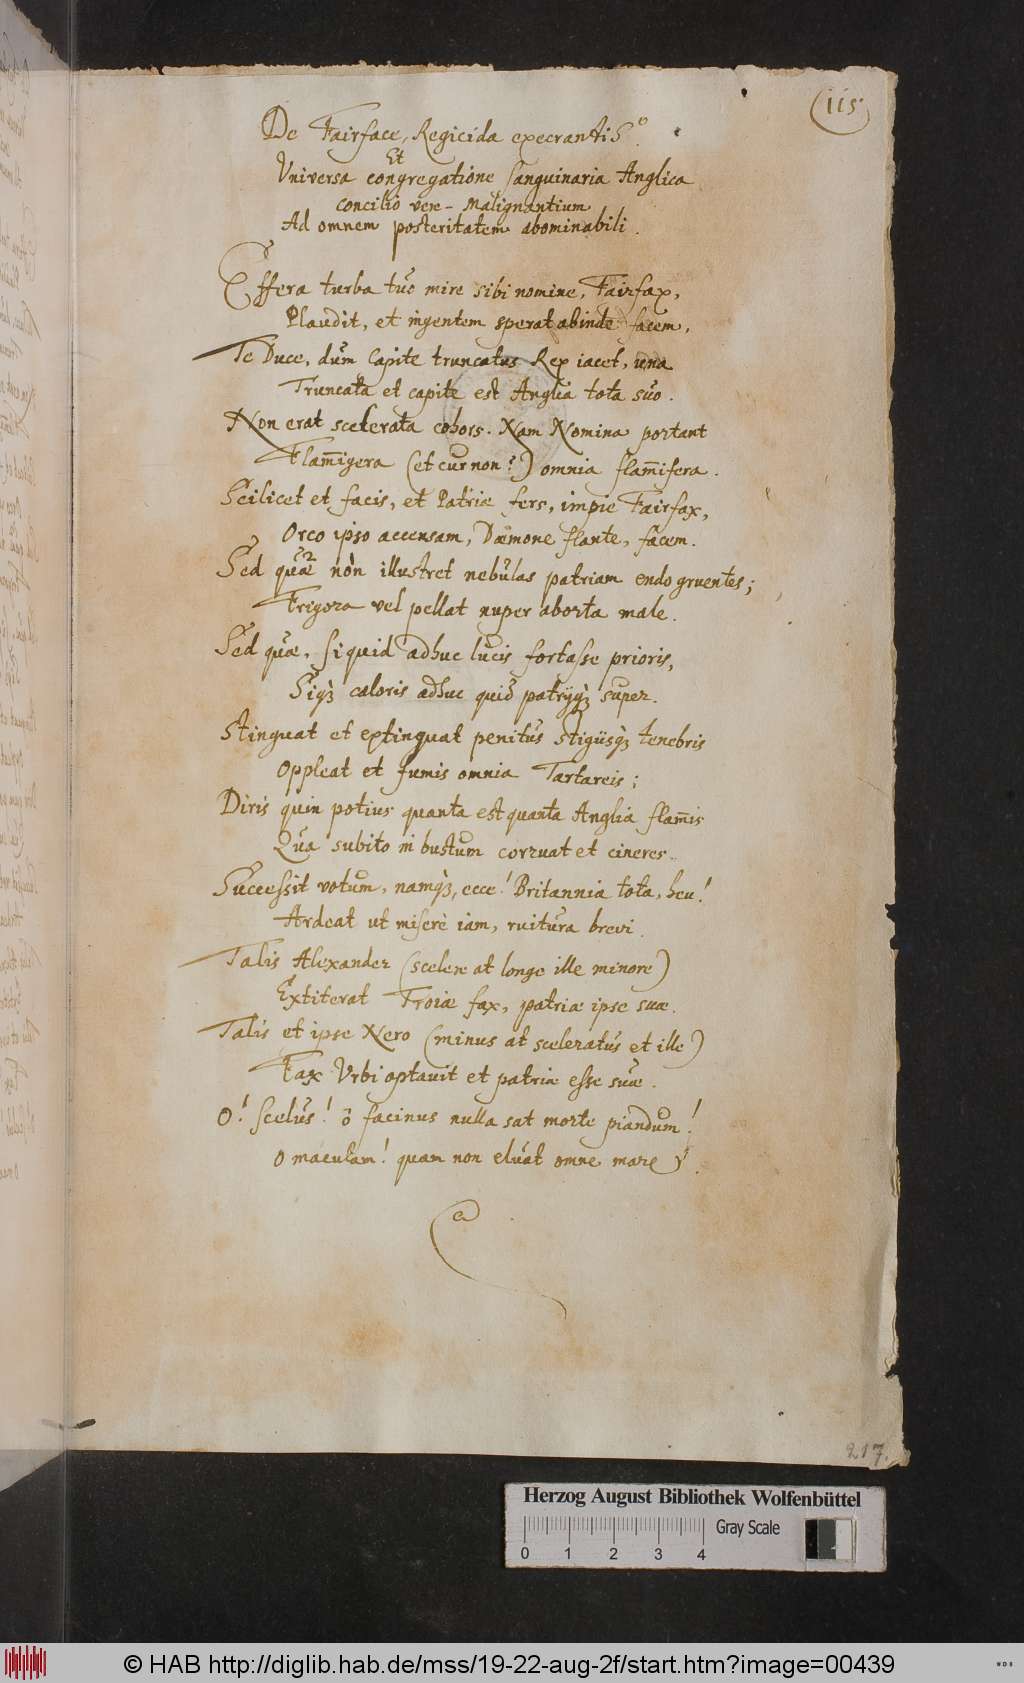 115
De Fairface, Regicida execrantiss.o
Et
Universa congregatione sanguinaria Anglica
concilio vere - Malignantium
Ad omnem posteritatem abominabili.
Effera turba tuo mire sibi nomine, Fairfax,
Plaudit, et ingentem sperat abinde facem.
Te Duce, dum Capite truncatus Rex iacet, una
Truncata et capite est Anglia tota suo.
Non erat scelerata cohors. Nam Nomina portant
Flam̄igera (et cur non?) omnia flam̄ifera.
Scilicet et facis, et Patriæ fers, impie Fairfax,
Orco ipso accensam, Dæmone flante, facem.
Sed quæ non illustret nebulas patriam endogruentes;
Frigora vel pellat nuper aborta male.
Sed quæ, siquid adhuc lucis fortasse prioris,
Siqꝫ caloris adhuc quid patrijqꝫ super.
Stinguat et extinguat penitus stigiisqꝫ tenebris
Oppleat et fumis omnia Tartareis;
Diris quin potius quanta est quanta Anglia flam̄is
Qua subito in bustum corruat et cineres.
Successit votum, namqꝫ, ecce! Britannia tota, heu!
Ardeat ut miserè iam, ruitura brevi.
Talis Alexander (scelere at longe ille minore)
Extiterat Troiæ fax, patriæ ipse suæ.
Talis et ipse Nero (minus at sceleratus et ille)
Fax Urbi optavit et patriæ esse suæ.
O! scelus! ô facinus nulla sat morte piandum!
O maculam! quam non eluat omne mare
217.
Herzog August Bibliothek Wolfenbüttel
Gray Scale
0 1 2 3 4
© HAB http://diglib.hab.de/mss/19-22-aug-2f/start.htm?image=00439